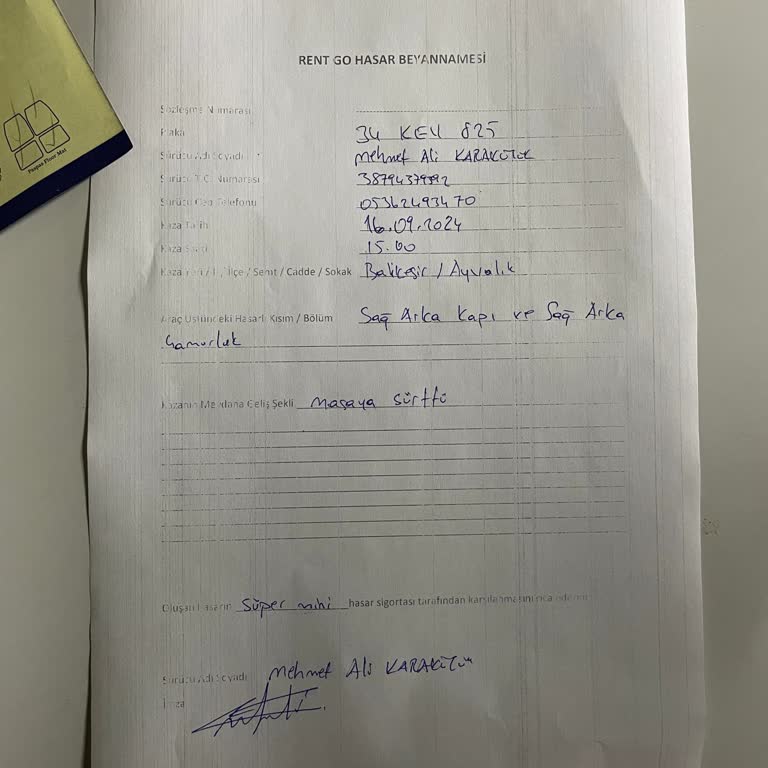 RENT GO HASAR BEYANNAMESİ
Sözleşme Numarası
Plaka 34 KEY 825
Sürücü Adı Soyadı Mehmet Ali
Sürücü T.C. Numarası
Sürücü Cep Telefonu 05362493470
Kaza Tarihi 16.09.2024
Kaza Saati 15.00
Kaza Yeri / İl / İlçe / Semt / Cadde / Sokak Balıkesir / Ayvalık
Araç Üstündeki Hasarlı Kısım / Bölüm Sağ Arka Kapı ve Sağ Arka
Çamurluk
Kazanın Meydana Geliş Şekli masaya sürttü
Oluşan hasarın süper mini hasar sigortası tarafından karşılanmasını rica ederim
Sürücü Adı Soyadı Mehmet Ali
İmza
Paspas Floor Mat